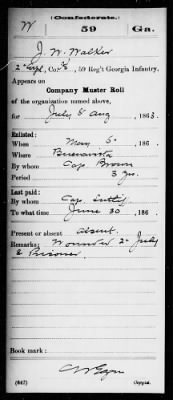 (Confederate.)
W 59 Ga.
J. W. Walker
2 Sergt, Co. 59 Reg't Georgia Infantry.
Appears on
Company Muster Roll
of the organization named above,
for July & Aug, 1863
Enlisted:
When May 5, 186
Where Buenavista
By whom Cap. Brown
Period 3 yrs.
Last paid:
By whom Cap.
To what time June 30, 186
Present or absent Absent.
Remarks: Wounded 2 July
& Prisoner
Book mark:
(642) Copyist.